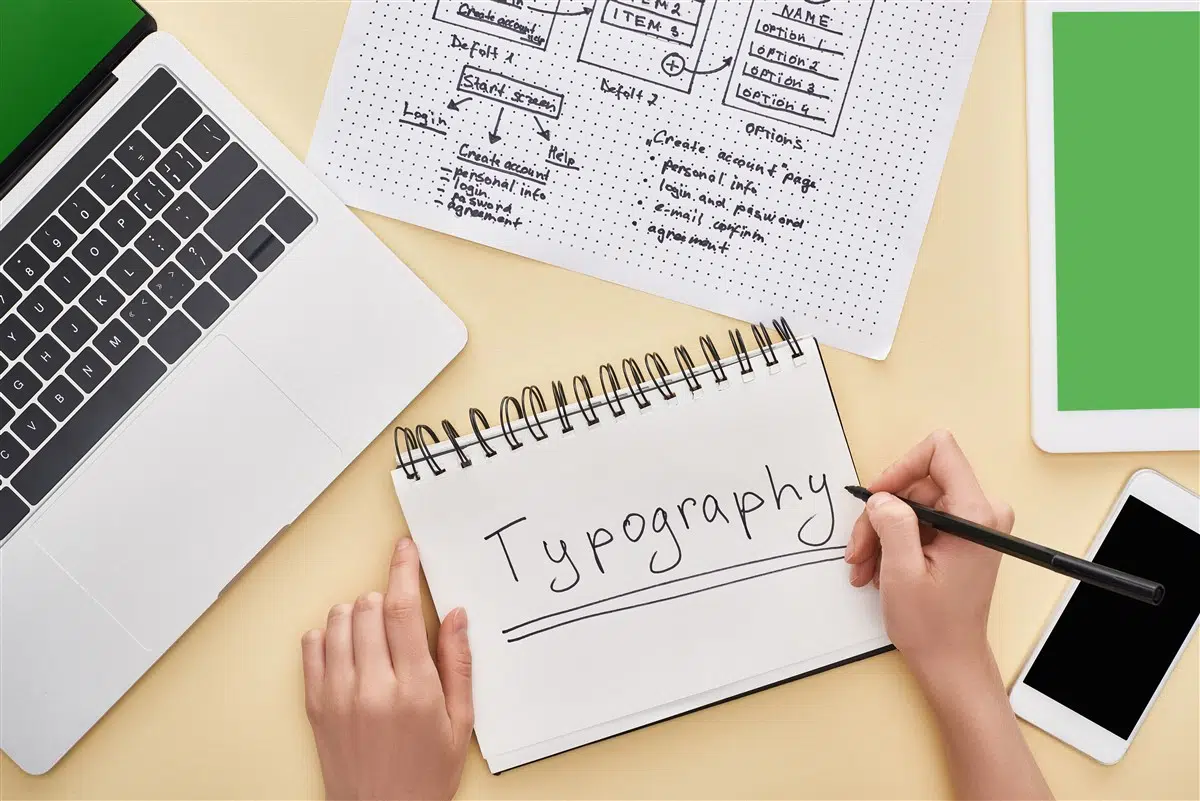 Create account
Help
Defolt 1
ITEM 2
ITEM 3
+
Defolt 2
NAME
OPTION 1
OPTION 2
OPTION 3
OPTION 4
OPTIONS
Start screen
Login
Create account
- personal info
- login
- pasword
- agreement
Help
"Create account" page
• personal info
• login and pasword
• e-mail confirm
• agreement
Typography